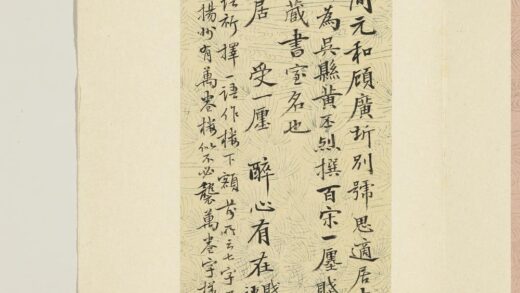 元和顧廣圻別號思適居
為吳縣黃丕烈撰百宋一廛賦
藏書室名也
居　受一廛　醉心有在
語祈擇一語作楼下額　前所云七字
揚州有萬卷樓似不必襲萬卷字樣